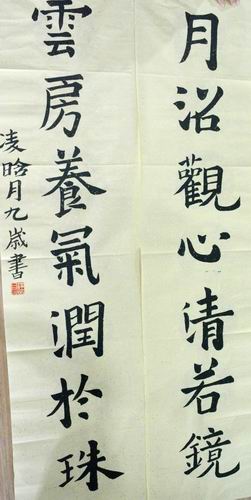 月沼觀心清若鏡
雲房養氣潤於珠
凌晗月九歲書